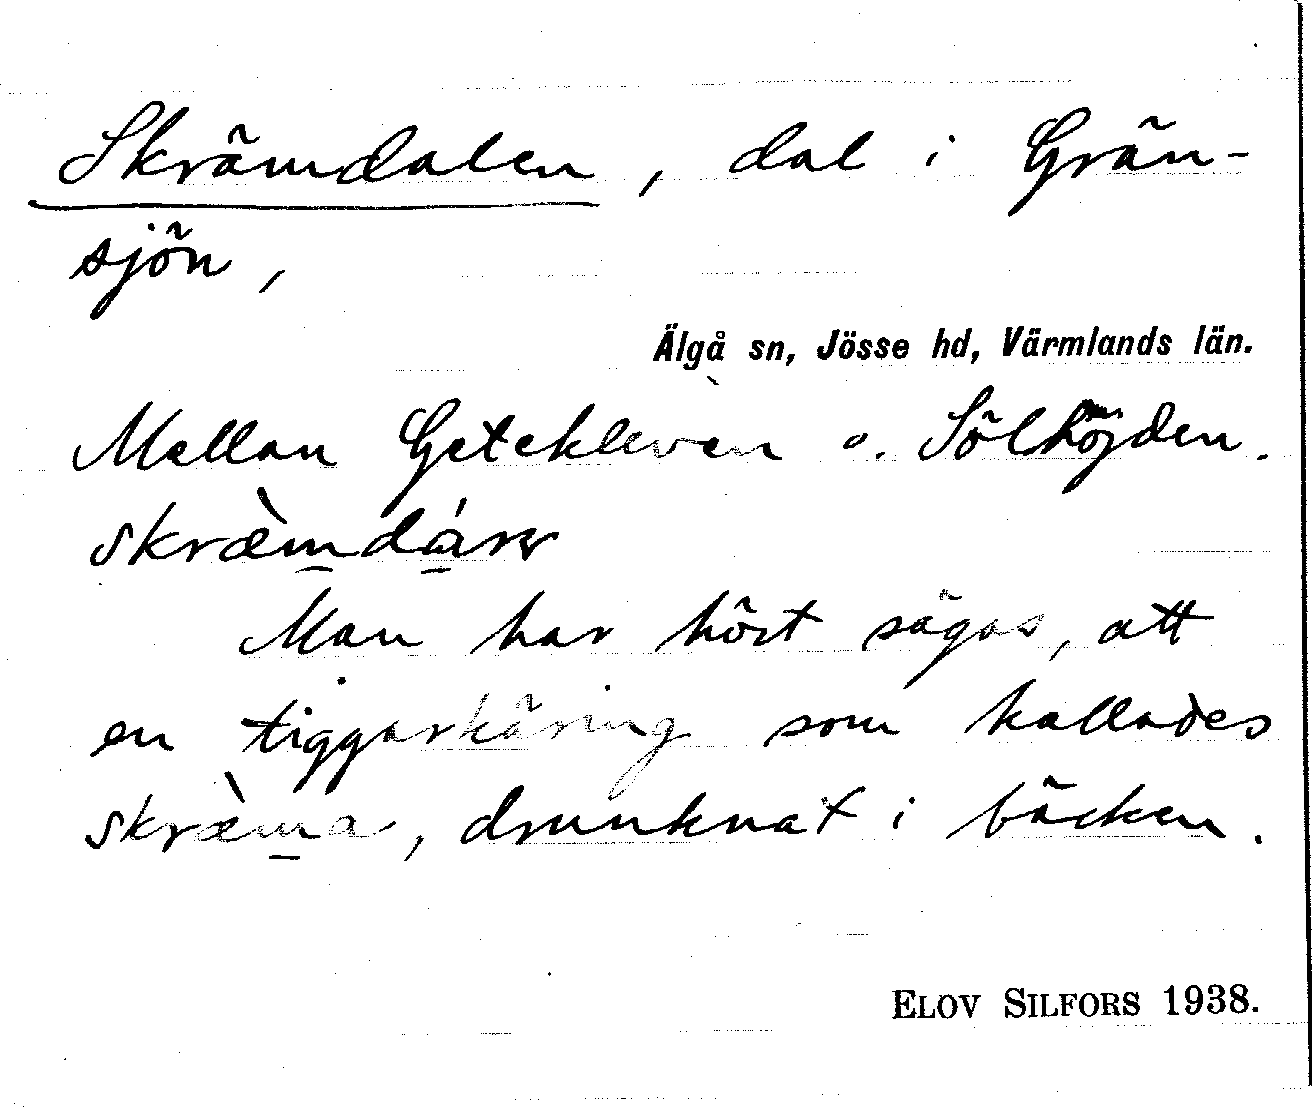 Skrämdalen, dal i Grän-
sjön,
Älgå sn, Jösse hd, Värmlands län.
Mellan Getekleven o. Sölhöjden.
skræ̀m̲dá̲rɴ
Man har hört sägas, att
en tiggarkäring som kallades
skræ̀m̲a, drunknat i bäcken.
ELOV SILFORS 1938.